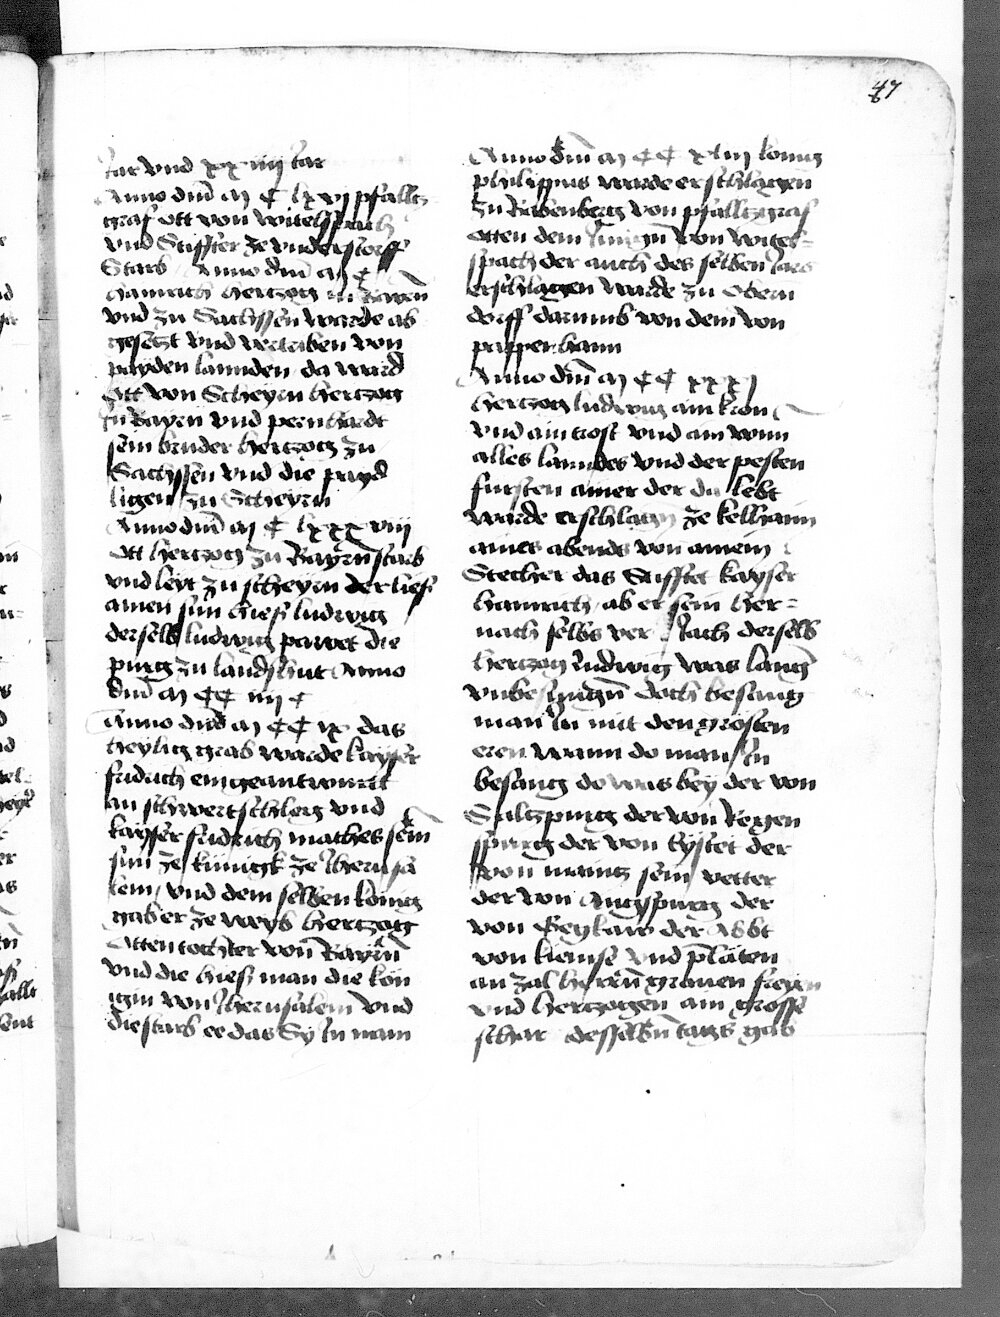 47
6
Jar vnd xx iiij Jar
Anno dnī m c lxvj pfalltz
graf ott von witelspach
vnd Stiffter ze vnderstorff
Starb Anno dnī m c
Hainrich Hertzog in Bayrn
vnd zu Sachssen warde ab
gesetzt vnd vertriben von
payden lannden da ward
Ott von Scheyrn Hertzog
zu Bayrn vnd pernhardt
sein bruder Hertzog zu
Sachssen vnd die payd
ligen zu Scheyrn
Anno dnī m c lxxx viij
Ott Hertzog zu Bayrn starb
vnd leyt zu scheyrn der lies
ainen sun hies ludwig
derselb ludwig pawet die
purg zu landshut Anno
dnī m cc iiij
Anno dnī m cc ix das
heylig grab warde kayser
fridrich eingeantwurt
an schwertschleg vnd
kayser fridrich machet sein
sun ze kunigk ze Jherusa
lem vnd dem selben konig
gab er ze weyb Hertzog
Otten tochter von Bayrn
vnd die hies man die kön
igin von Jherusalem vnd
die starb ee das Sy In nam
Anno dnī m cc xliij konig
philippus warde erschlagen
zu Babenberg von pfalltzgraf
Otten dem Jungn von witel=
spach der auch des selben Jars
erschlagen warde zu Obern
dorff darumb von dem von
papperhaim
Anno dnī m cc xxxj
Hertzog ludwig ain kron
vnd ain trost vnd ain wunn
alles lanndes vnd der pesten
fursten ainer der da lebt
warde erschlagn ze kelhaim
aines abends von ainem
Stecher das Stifftet kayser
Hainrich ab er sein her=
nach selbs ver Jach derselb
Hertzog ludwig was lang
vnbesungn doch besang
man In mit den grosten
eren wann do man In
besang do was bey der von
Saltzpurg der von Regen
spurg der von Eystet der
von maintz sein vetter
der von Augspurg der
von Seykaw der Abbt
von kiemse vnd prelaten
an zal herren grauen freyen
vnd Hertzogen ain grosse
schar desselbn tags gab